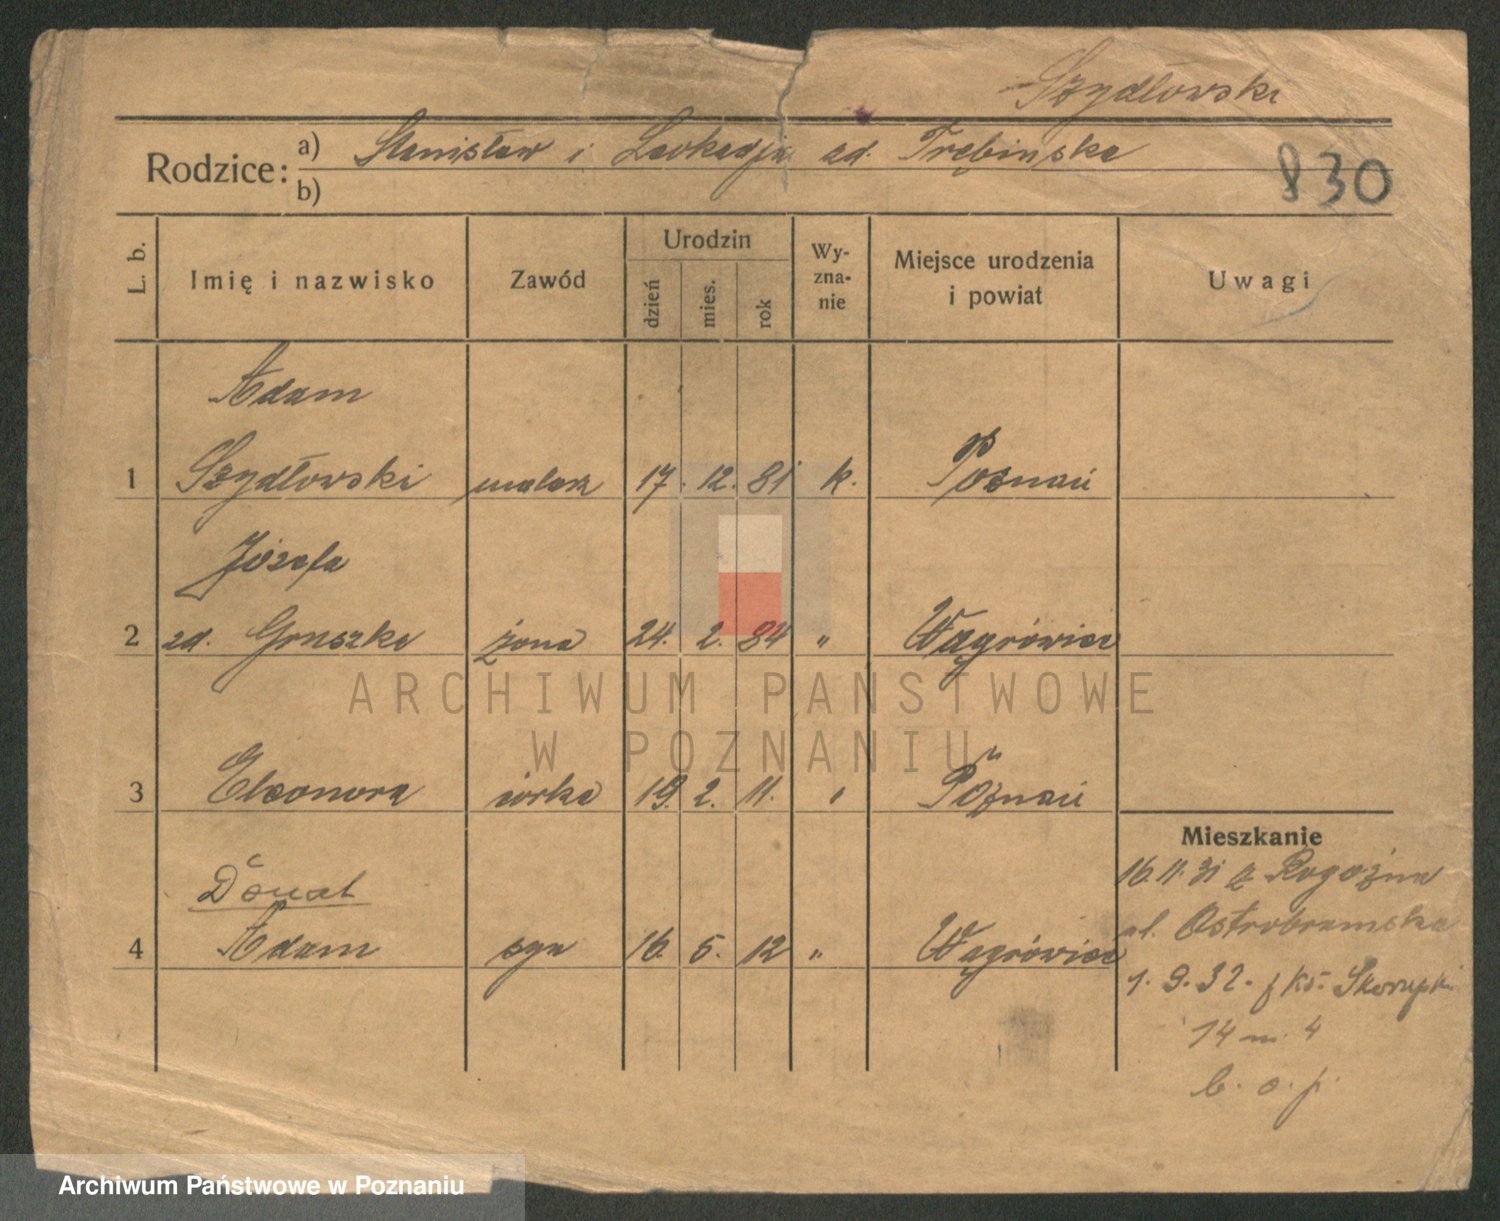 Szydłowski
Rodzice: a) Stanisław i Leokadja zd. Trębińska
b)
830
L. b. Imię i nazwisko Zawód Urodzin dzień mies. rok Wyzna-nie Miejsce urodzenia i powiat Uwagi
Adam
1 Szydłowski malarz 17. 12. 81 k. Poznań
Józefa
2 zd. Gruszka żona 24. 2. 84 " Wągrówiec
ARCHIWUM PAŃSTWOWE
W POZNANIU
3 Eleonora córka 19. 2. 11. " Poznań
Mieszkanie
16.11.31 z Rogoźna
Donat
ul. Ostrobramska
4 Adam syn 16. 5. 12 " Wągrówiec
1. 9. 32. ks. Skorupki
14 m. 4
b. o. p.
Archiwum Państwowe w Poznaniu